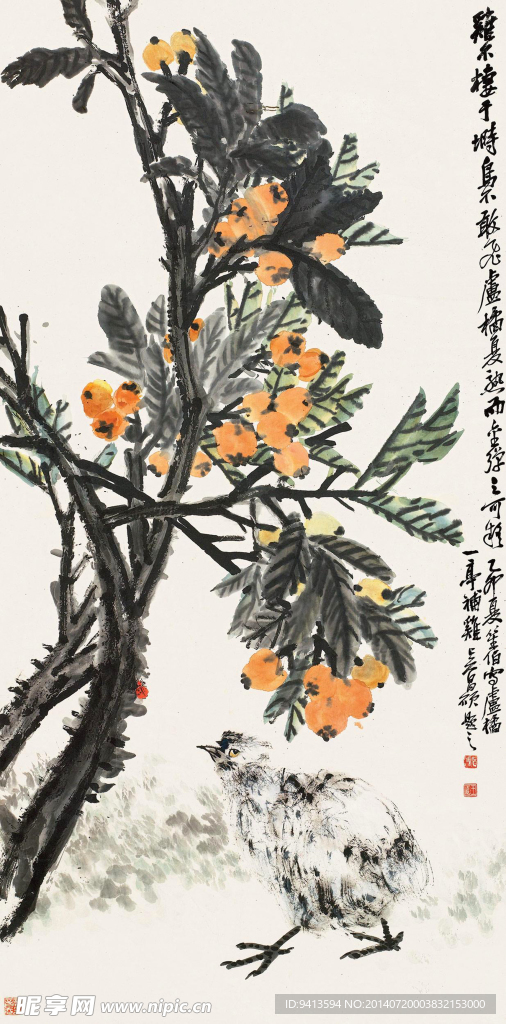 雞不棲于塒鳥不敢飛盧橘夏熟而金彈之可疑
乙卯夏坐伯寫盧橘
一亭補雞吳昌碩題之
昵享网 www.nipic.cn
ID:9413594 NO:20140720003832153000